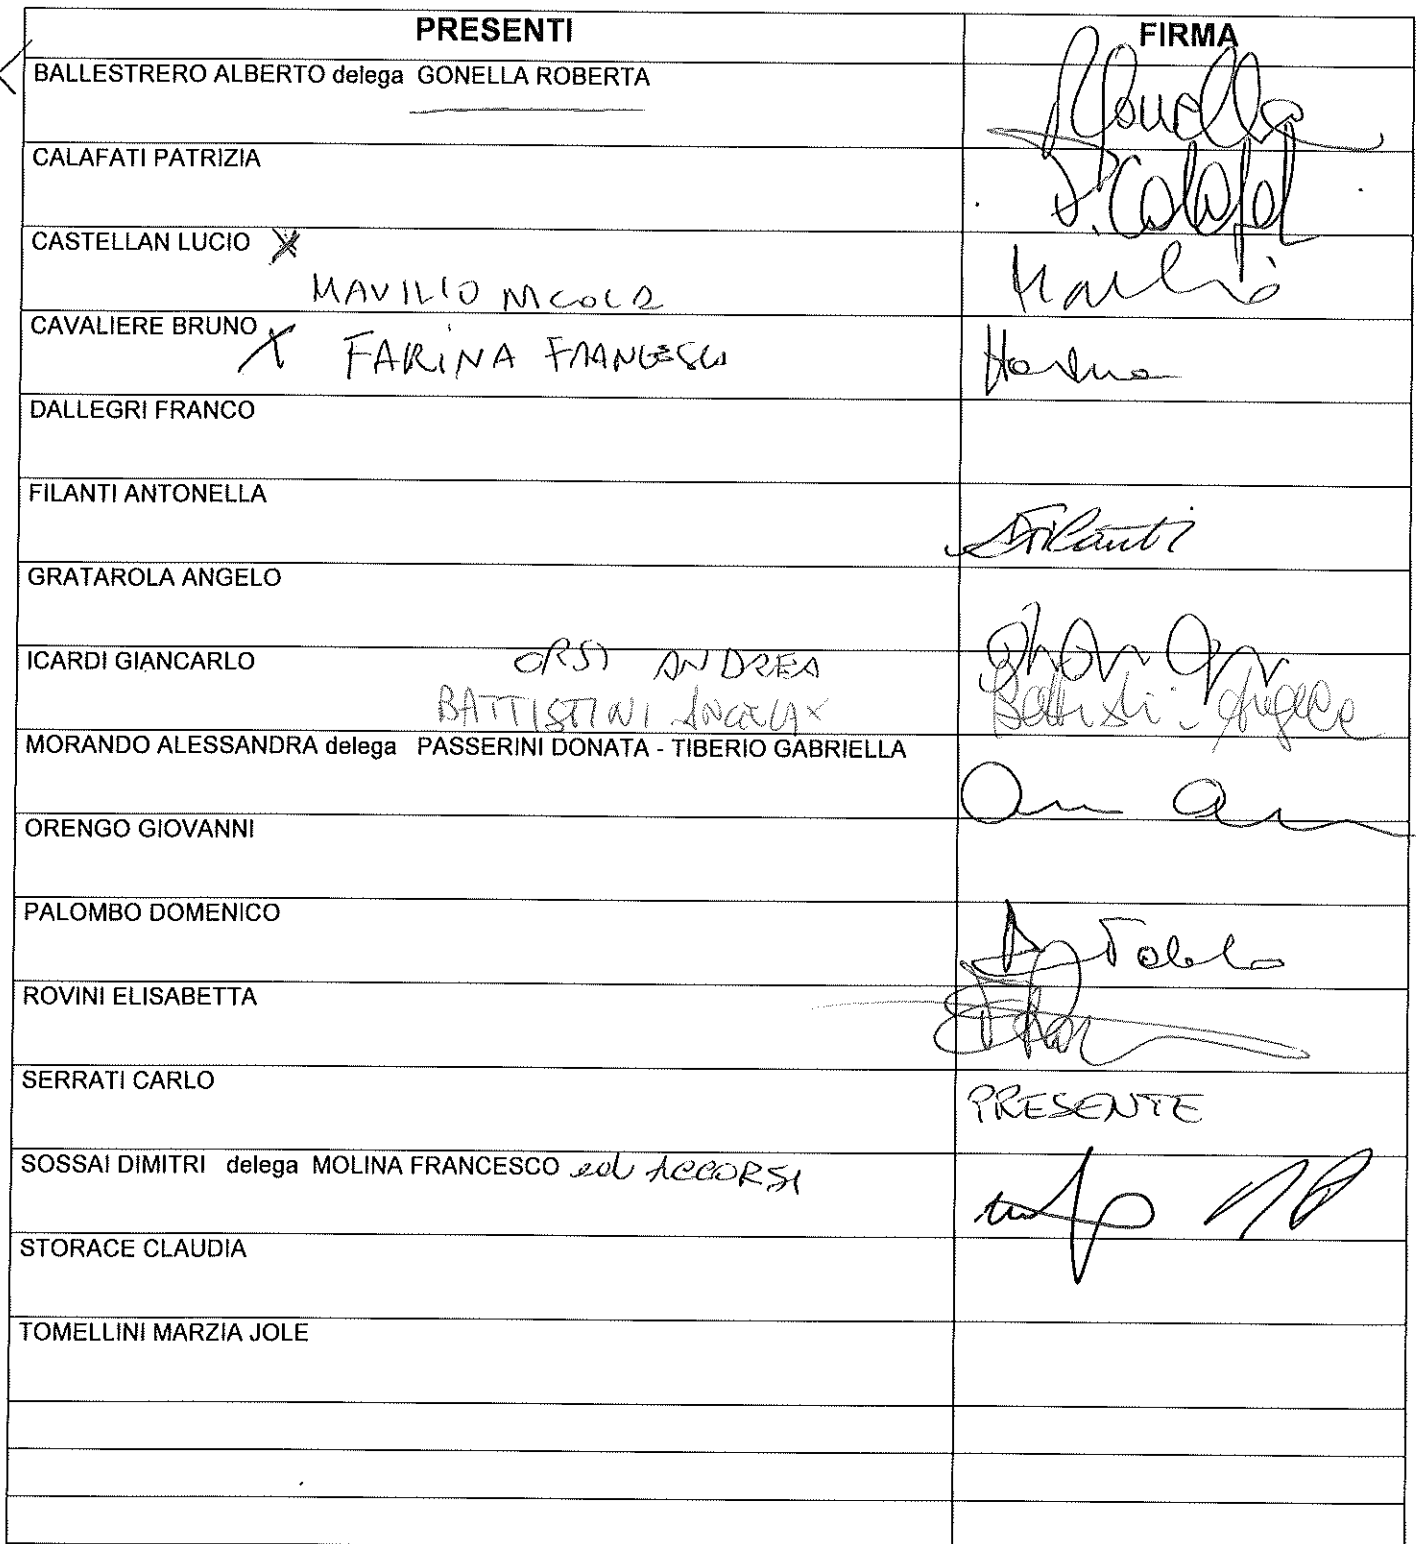 PRESENTI FIRMA
BALLESTRERO ALBERTO delega GONELLA ROBERTA
CALAFATI PATRIZIA
CASTELLAN LUCIO
MAVILIO
CAVALIERE BRUNO FARINA
DALLEGRI FRANCO
FILANTI ANTONELLA
GRATAROLA ANGELO
ICARDI GIANCARLO ORSI ANDREA
BATTISTINI ANGELA
MORANDO ALESSANDRA delega PASSERINI DONATA - TIBERIO GABRIELLA
ORENGO GIOVANNI
PALOMBO DOMENICO
ROVINI ELISABETTA
SERRATI CARLO PRESENTE
SOSSAI DIMITRI delega MOLINA FRANCESCO ed ACCORSI
STORACE CLAUDIA
TOMELLINI MARZIA JOLE